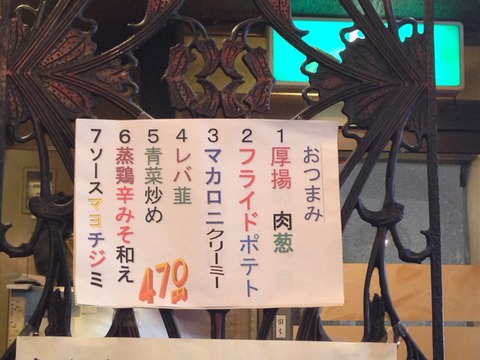 おつまみ
1 厚揚 肉葱
2 フライドポテト
3 マカロニクリーミー
4 レバ韮
5 青菜炒め
6 蒸鶏辛みそ和え
7 ソースマヨチヂミ
470円
引く